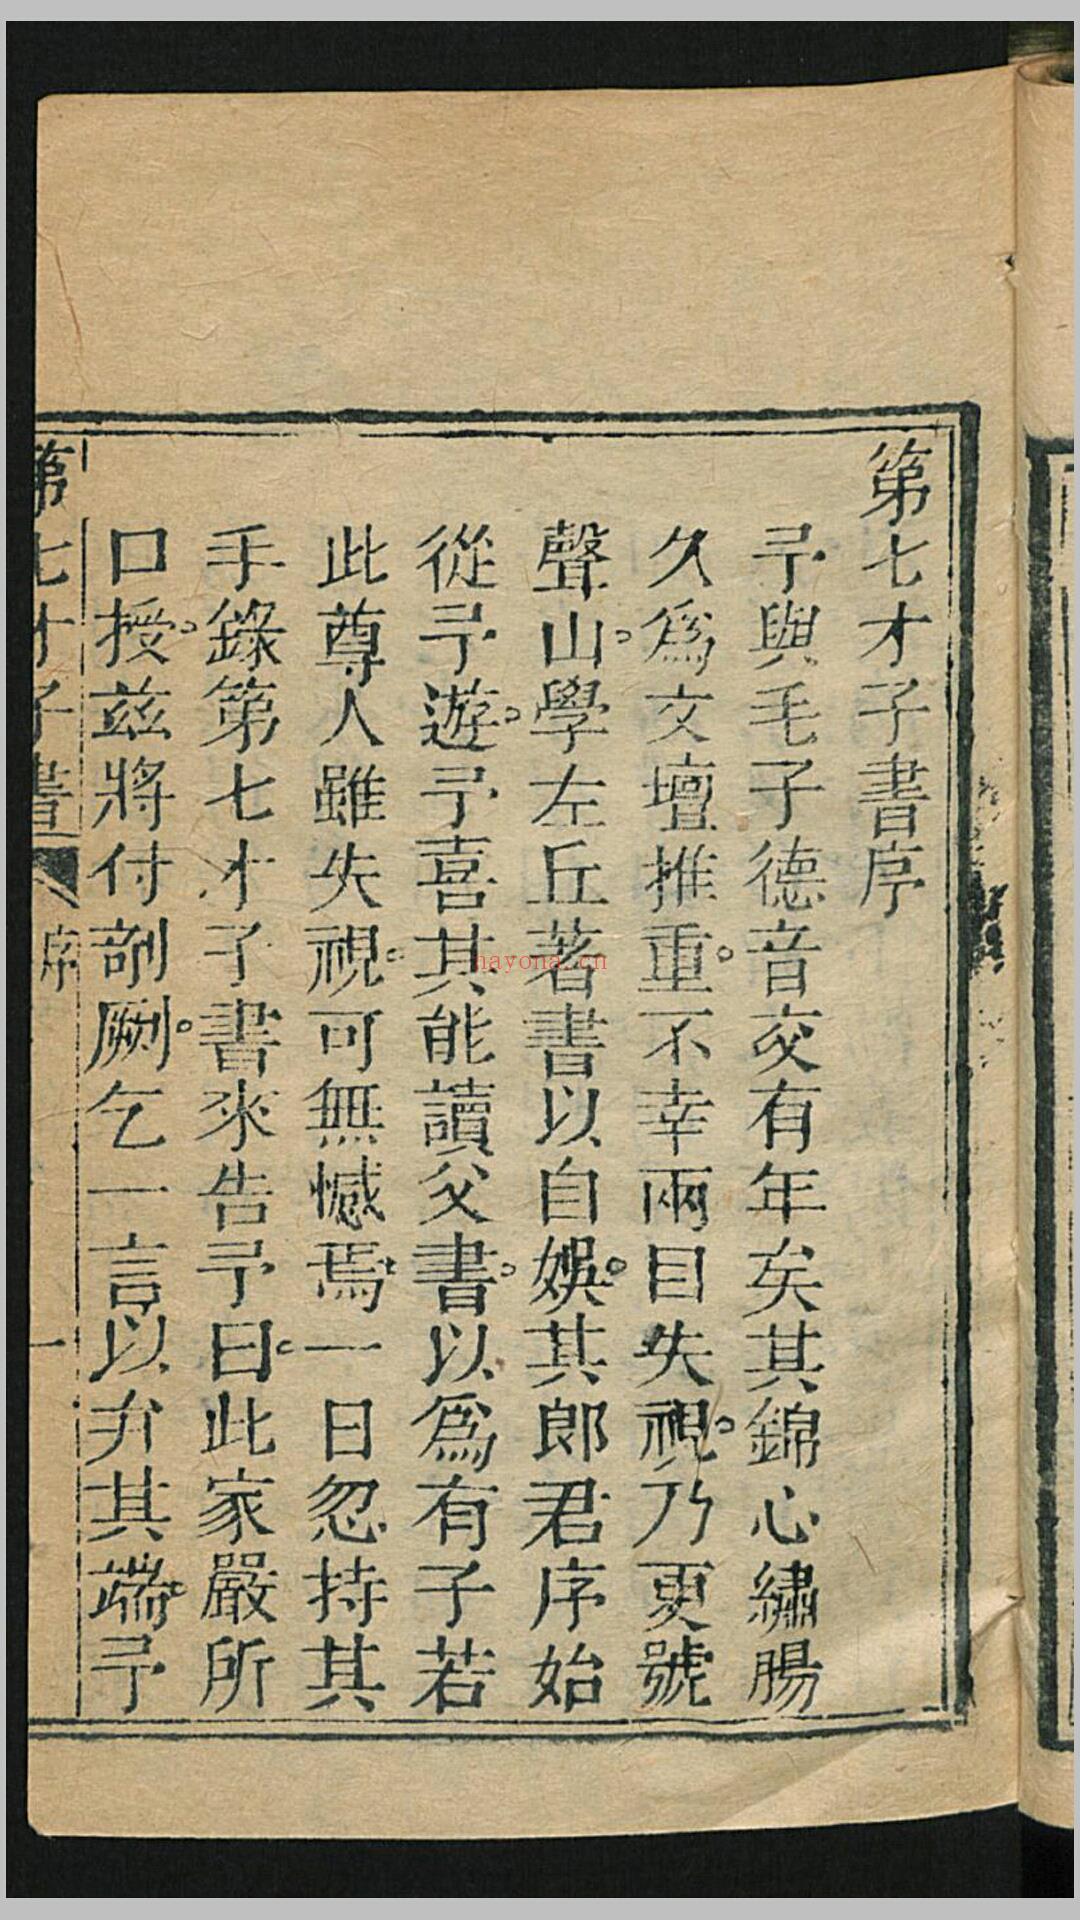 第七才子書序
予與毛子德音交有年矣其錦心繡腸
久爲文壇推重。不幸兩目失視。乃更號
聲山。學左丘著書以自娛。其郎君序始
從予遊。予喜其能讀父書。以爲有子若
此尊人雖失視。可無憾焉。一日忽持其
手錄第七才子書來告予曰。此家嚴所
口授。兹將付剞劂。乞一言以弁其端。予
第七才子書 序 一
nayona.cn